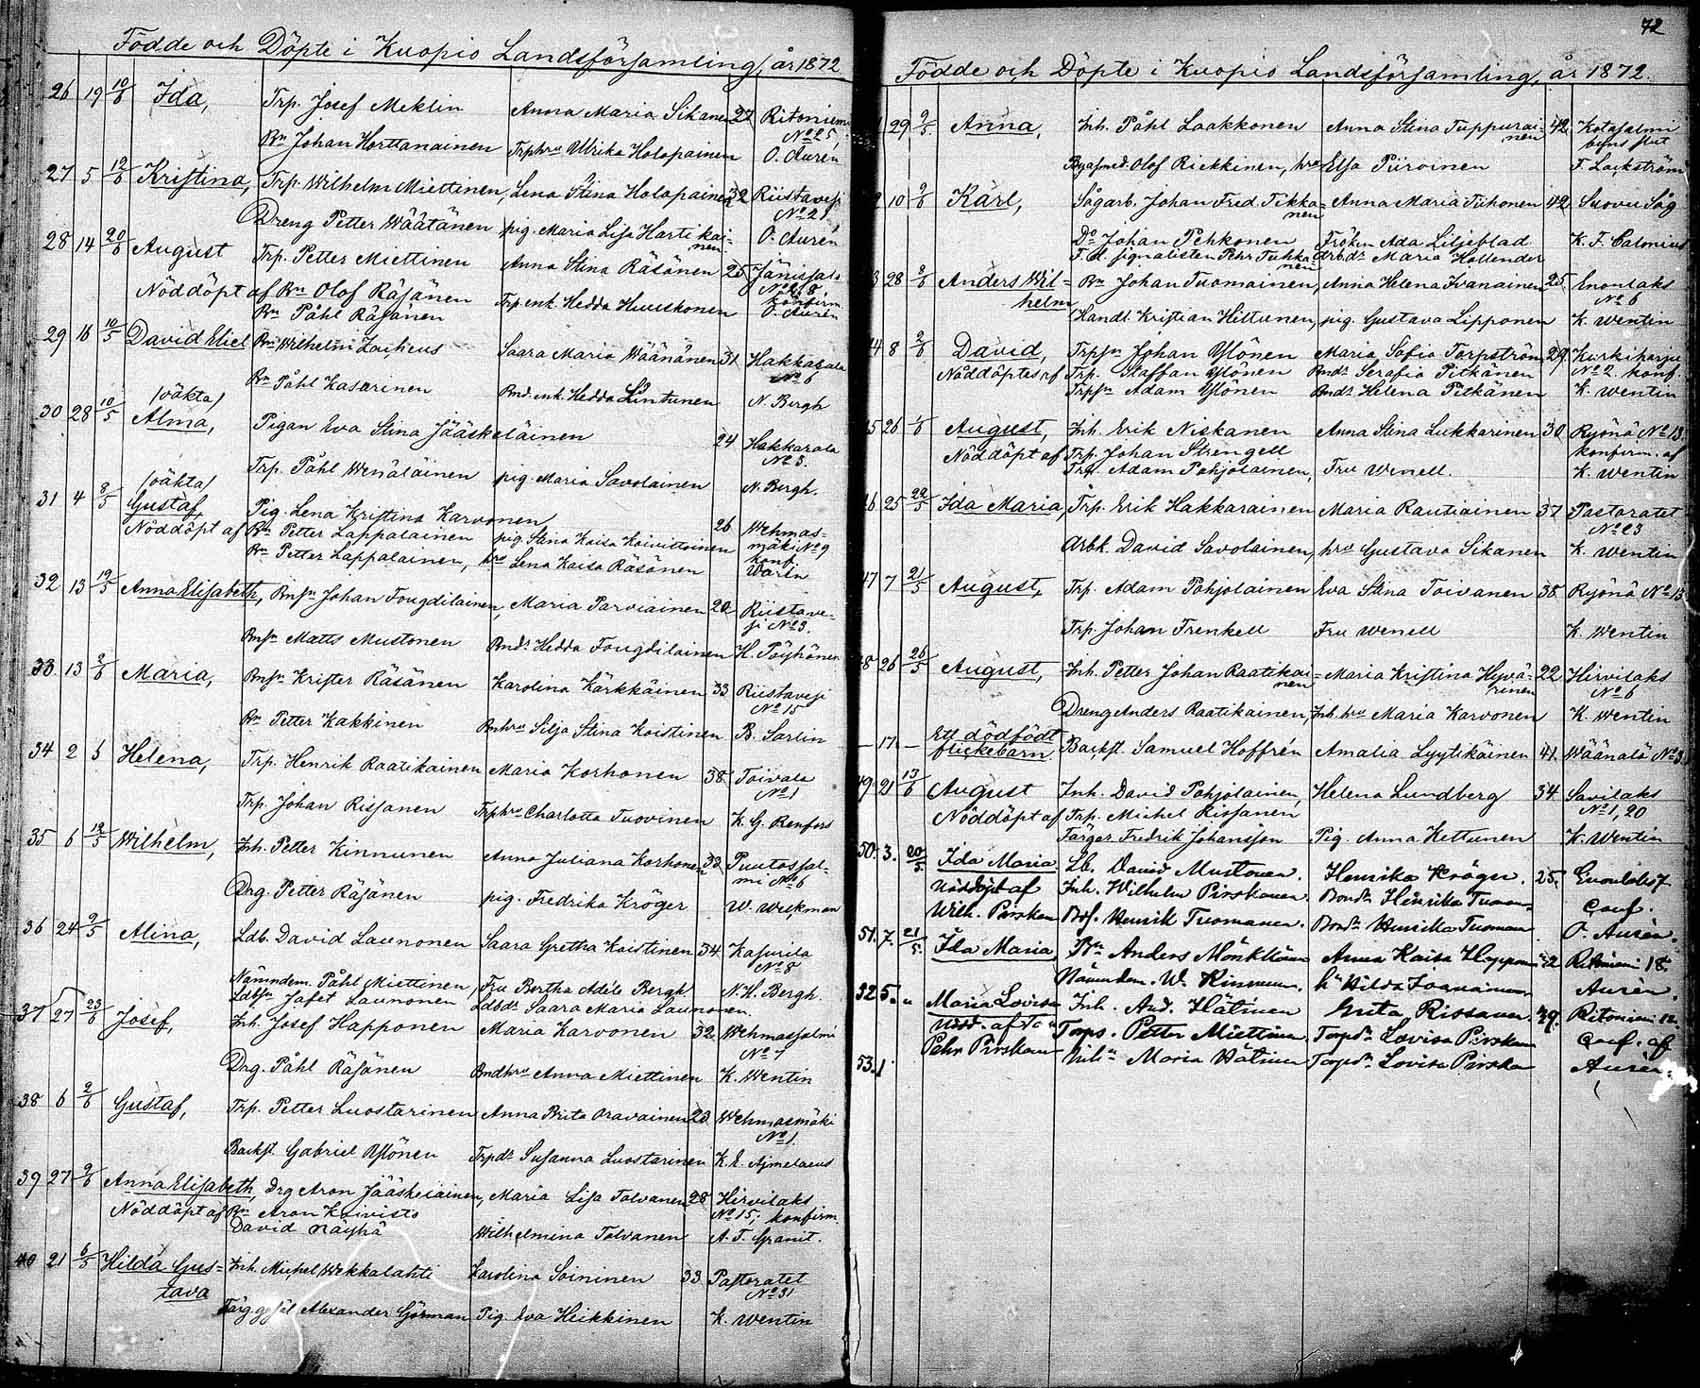 Födde och Döpte i Kuopio Landsförsamling, år 1872
26 19 10/6 Ida, Trp. Josef Meklin Anna Maria Sikanen 27 Ritoniemi
Bn Johan Horttanainen Trphru Ulrika Holopainen No 25
O. Aurén
27 5 12/6 Kristina, Trp. Wilhelm Miettinen, Lena Stina Holopainen 32 Riistavesi
No 2
Dreng Petter Wäätänen pig. Maria Lisa Hartikai=
nen O. Aurén
28 14 20/6 August Trp. Petter Miettinen Anna Stina Räsänen 25 Jänissalo
No 2, 8
Nöddöpt af Bn Olof Räsänen Trp. enk. Hedda Huuskonen konfirm.
Bn Påhl Räsänen O. Aurén
29 16 10/5 David Eliel Bn Wilhelm Saara Maria Wäänänen 31 Hakkarala
No 6
Bn Påhl Kasurinen Bnd. enk. Hedda Lintunen N. Bergh
30 28 10/5 (oäkta)
Alma, Pigan Eva Stina Jääskeläinen 24 Hakkarala
No 3.
Trp. Påhl Wenäläinen pig. Maria Savolainen N. Bergh.
31 4 8/5 (oäkta)
Gustaf, Pig. Lena Kristina Karvonen 26 Wehmas=
mäki No 9
Nöddöpt af Bn Petter Lappalainen pig. Stina Kaisa Koivistoinen konf.
Bn Petter Lappalainen, hru Lena Kaisa Räsänen
32 13 19/5 Anna Elisabeth, Bnsn Johan Fougdilainen, Maria Parviainen 20 Riistave=
si No 3.
Bnsn Matts Mustonen Bndr Hedda Fougdilainen H. Pöyhönen
33 13 2/6 Maria, Bnsn Krister Räsänen Karolina Kärkkäinen 33 Riistavesi
No 15
Bn Petter Kakkinen Bnhru Silja Stina Koistinen B. Sarlin
34 2 Helena, Trp. Henrik Raatikainen Maria Korhonen 38 Toivala
No 1
Trp. Johan Rissanen Trphru Charlotta Tuovinen K. G. Renfors
35 6 19/5 Wilhelm, Inh. Petter Kinnunen Anna Juliana Korhonen 33 Puutossal=
mi No 6
Drg. Petter Räsänen pig. Fredrika Kröger W. Wickman
36 24 9/5 Alina, Ldb. David Launonen Saara Gretha Koistinen 34 Kasurila
No 8
Nämndem. Påhl Miettinen, Fru Bertha Adéle Bergh N. H. Bergh.
Ldbsn Jafet Launonen Ldbdr Saara Maria Launonen.
37 27 23/6 Josef, Inh. Josef Happonen Maria Karvonen 32 Wehmassalmi
No 7
Drg. Påhl Räsänen Bndhru Anna Miettinen K. Wentin
38 6 2/6 Gustaf, Trp. Petter Luostarinen Anna Brita Oravainen 23 Wehmasmäki
No 1.
Backst. Gabriel Ylönen Trpdr Susanna Luostarinen K. E. Ajmelaeus
39 27 9/6 Anna Elisabeth, Drg Aron Jääskeläinen, Maria Lisa Tolvanen 28 Hirvilaks
Nöddöpt af Bn Aron Koivisto No 15; konfirm.
David Räyhä Wilhelmina Tolvanen A. F. Granit.
40 21 6/5 Hilda Gus= Inh. Michel Wekkalahti Karolina Soininen 33 Pastoratet
tava No 31
Färg. gesäl Alexander Görman Pig. Eva Heikkinen K. Wentin
72
Födde och Döpte i Kuopio Landsförsamling, år 1872.
29 9/5 Anna, Inh. Påhl Laakkonen Anna Stina Tuppurai= 42 Kotasalmi
nen
Olof Riekkinen, hru Elsa Purvinen F. Lackström
10 9/6 Karl, Sågarb. Johan Fred. Tikka= Anna Maria Tiihonen 42 Suovu Såg
nen
Do Johan Pehkonen Fröken Ada Liljeblad K. F. Calonius
F. d. signalisten Pehr Tuhka= Arbdr Maria Hollender
nen
3 28 9/6 Anders Wil= Bn Johan Tuomainen, Anna Helena Ivanainen 25. Enonlaks
helm No 6
Handl. Kristian Hiltunen, pig. Gustava Lipponen K. Wentin
4 8 2/6 David, Trpsn Johan Ylönen Maria Sofia Torpström 29 Kurkiharju
Nöddöptes af Trp. Staffan Ylönen Bndr Serafia Pitkänen No 2. konf.
Trpsn Adam Ylönen Bndr Helena Pitkänen K. Wentin
5 26 1/6 August, Inh. Erik Niskanen Anna Stina Lukkarinen 30 Ryönä No 13
Nöddöpt af Trp. Johan Strengell konfirm. af
Trp. Adam Pohjolainen, Fru Wenell. K. Wentin
46 25 22/5 Ida Maria, Trp. Erik Hakkarainen Maria Rautiainen 37 Pastoratet
No 23
Arbk. David Savolainen, hru Gustava Sikanen K. Wentin
47 7 21/5 August, Trp. Adam Pohjolainen Eva Stina Toivanen 38 Ryönä No 13
Trp. Johan Trenkell Fru Wenell K. Wentin
48 26 26/5 August, Inh. Petter Johan Raatikai= Maria Kristina Hyvä= 22 Hirvilaks
nen rinen No 6
Dreng Anders Raatikainen, Inh. hru Maria Karvonen K. Wentin
— 17. — Ett dödfödt
flickebarn. Backst. Samuel Hoffrén Amalia Lyytikäinen 41. Wäänälä No 3
49 21 13/6 August Inh. David Pohjolainen, Helena Lundberg 34 Savilaks
No 1, 20
Nöddöpt af Trp. Michel Rissanen
Färger. Fredrik Johansson Pig. Anna Kettunen K. Wentin
50. 3. 20/5. Ida Maria Lb. David Mustonen. Henrika Kröger. 25.
Nöddöpt af Inh. Wilhelm Pirskanen. Bondr Henrika Conf.
Wilh. Pirskan Henrik Tuomanen. Bondr Henrika O. Aurén.
51. 7. 21/5. Ida Maria Bn Anders Mönkkönen Anna Kaisa Happon Ritoniemi 18.
Nämndem. W. Kinnunen. Hilda Aurén.
52 5. " Maria Lovisa Inh. And. Hätinen Greta Rissanen. 29. Ritoniemi 12.
Nödd. af Torp. Petter Miettinen Torpdr Lovisa Pirskan Conf. af
Pehr Pirskan Maria Hätinen Torpdr Lovisa Pirskan Aurén.
53. 1